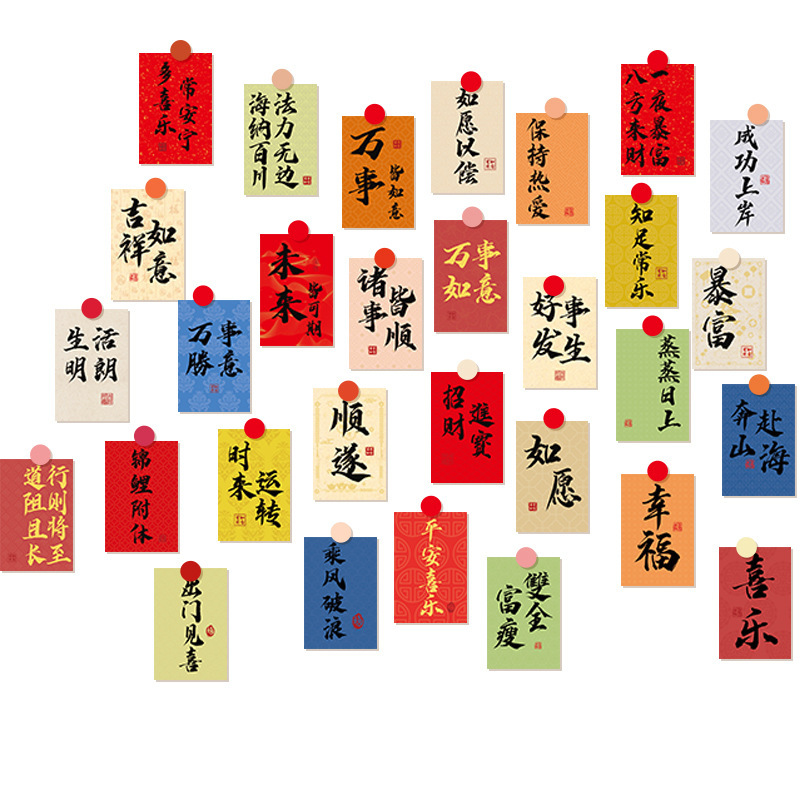 多喜乐
常安宁
法力无边
海纳百川
万事
皆如意
如愿以偿
保持热爱
一夜暴富
八方来财
成功上岸
吉祥
如意
未来
皆可期
诸事
皆顺
万事
如意
知足常乐
暴富
生活
明朗
万事
勝意
好事
发生
蒸蒸日上
順遂
招财
進寶
如愿
奔赴
山海
道阻且长
行则将至
锦鲤附体
时来
运转
幸福
出门见喜
乘风破浪
平安喜乐
富瘦
雙全
喜乐